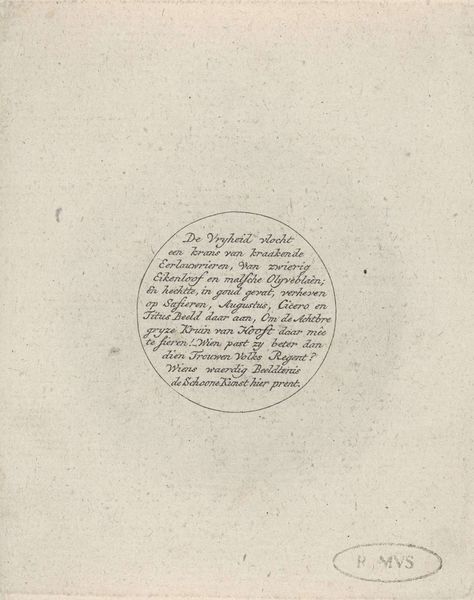 De Vryheid vlocht
een krans van kraakende
Eerlauwrieren, Van zwierig
Eikenloof en malsche Olyveblaên;
En hechtte, in goud gevat, verheven
op Safieren, Augustus, Cicero en
Titus Beeld daar aan, Om de Achtbre
gryze Kruin van Hooft daar mêe
te sieren! Wien past zy beter dan
dien Trouwen Volks Regent?
Wiens waerdig Beeldtenis
de Schoone Kunst hier prent.
R.MVS